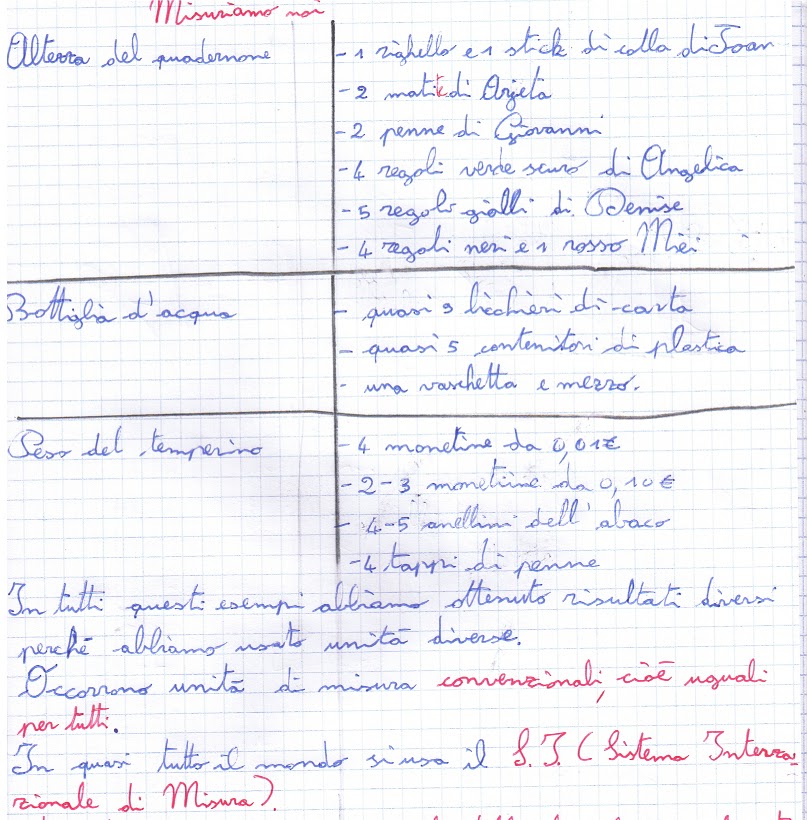 Misuriamo noi
Altezza del quadernone
- 1 righello e 1 stick di colla di Joan
- 2 matite di Arjeta
- 2 penne di Giovanni
- 4 regoli verde scuro di Angelica
- 5 regoli gialli di Denise
- 4 regoli neri e 1 rosso Miei
Bottiglia d'acqua
- quasi 9 bicchieri di carta
- quasi 5 contenitori di plastica
- una vaschetta e mezzo.
Peso del temperino
- 4 monetine da 0,01€
- 2-3 monetine da 0,10€
- 4-5 anellini dell'abaco
- 4 tappi di penne
In tutti questi esempi abbiamo ottenuto risultati diversi
perché abbiamo usato unità diverse.
Occorrono unità di misura convenzionali, cioè uguali
per tutti.
In quasi tutto il mondo si usa il S.I. (Sistema Interna-
zionale di Misura).